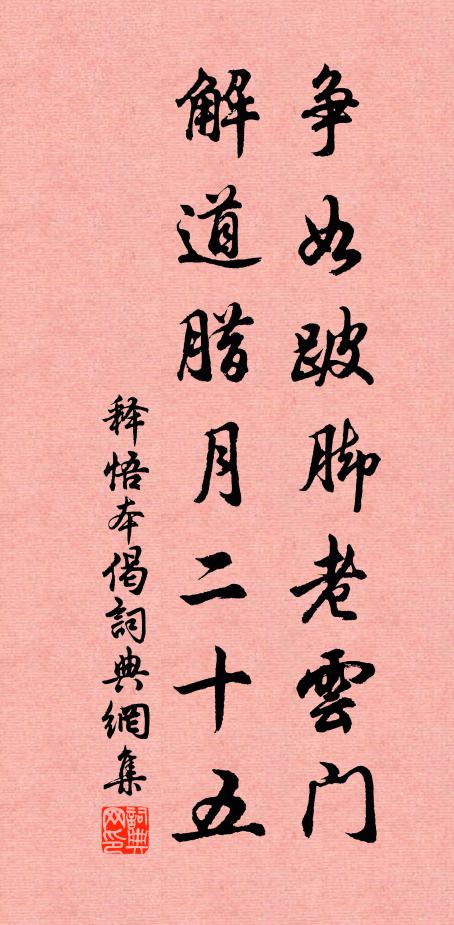 争如跛脚老雲门
解道腊月二十五
释悟本偈詞典網集
詞典网印